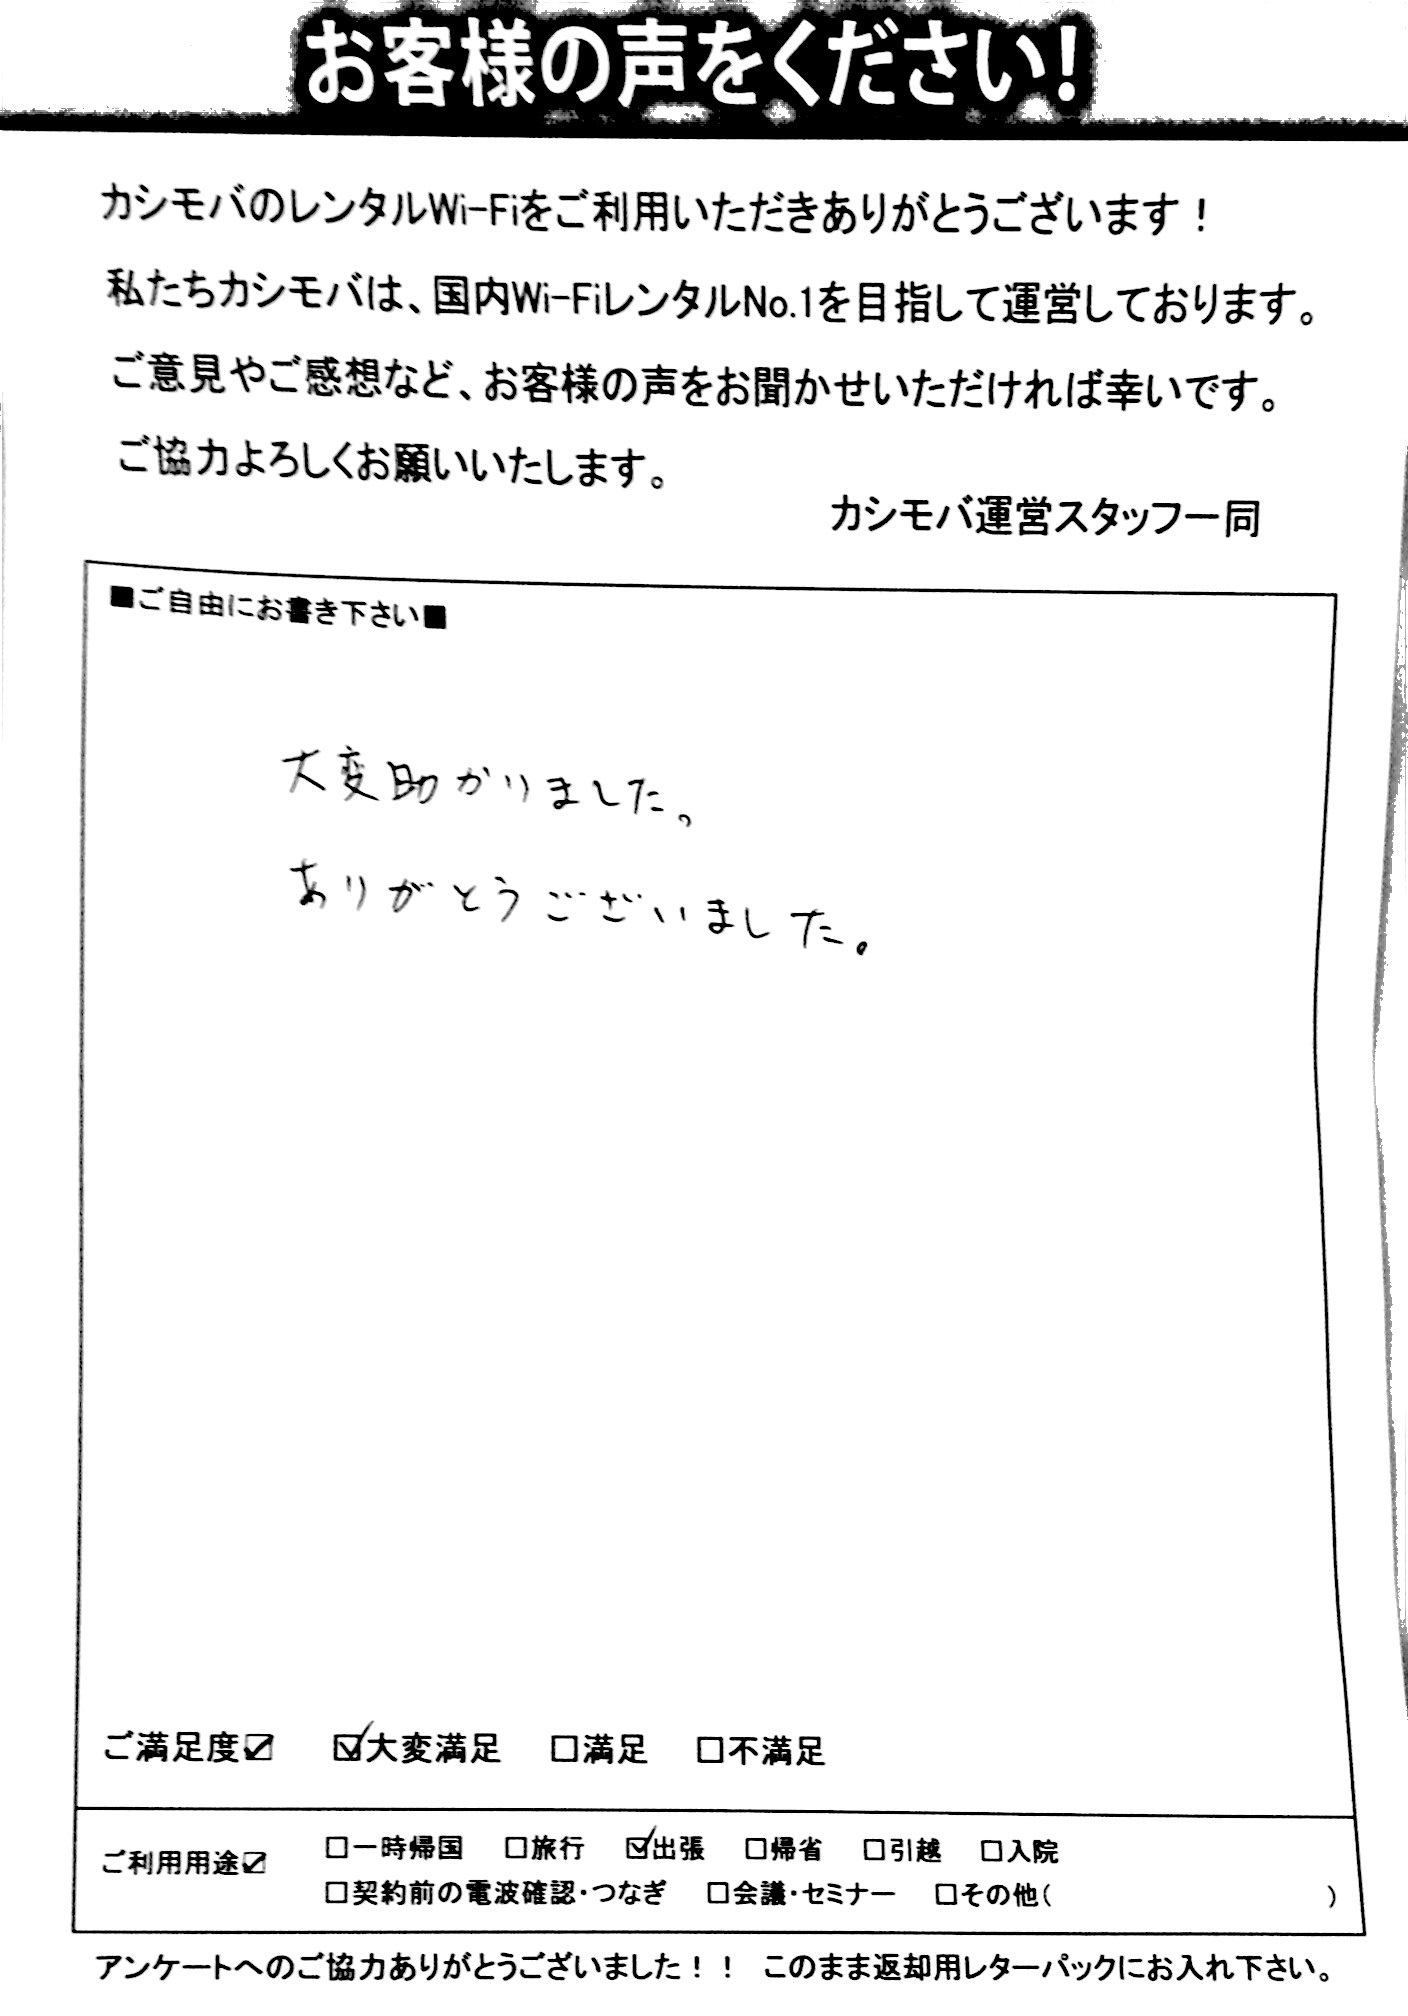 お客様の声をください!
カシモバのレンタルWi-Fiをご利用いただきありがとうございます！
私たちカシモバは、国内Wi-FiレンタルNo.1を目指して運営しております。
ご意見やご感想など、お客様の声をお聞かせいただければ幸いです。
ご協力よろしくお願いいたします。
カシモバ運営スタッフ一同
■ご自由にお書き下さい■
大変助かりました。
ありがとうございました。
ご満足度☑ ☑大変満足 □満足 □不満足
ご利用用途☑ □一時帰国 □旅行 ☑出張 □帰省 □引越 □入院
□契約前の電波確認・つなぎ □会議・セミナー □その他( )
アンケートへのご協力ありがとうございました！！ このまま返却用レターパックにお入れ下さい。